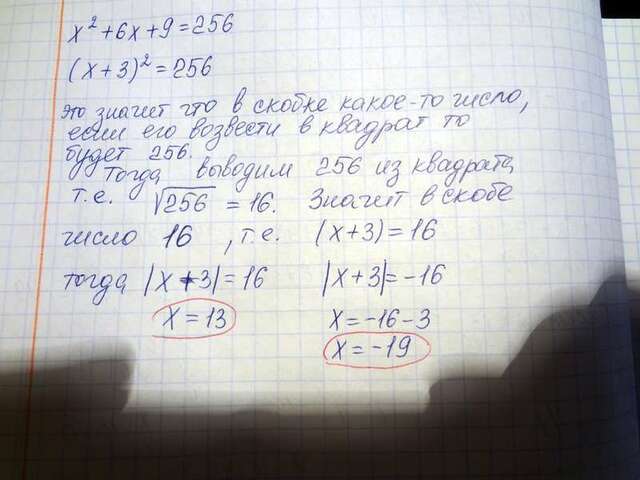 x² + 6x + 9 = 256
(x + 3)² = 256
это значит что в скобке какое-то число,
если его возвести в квадрат то
будет 256.
Тогда выводим 256 из квадрата,
т.е. √256 = 16. Значит в скобе
число 16, т.е. (x + 3) = 16
тогда |x + 3| = 16 |x + 3| = -16
x = 13 x = -16 - 3
x = -19